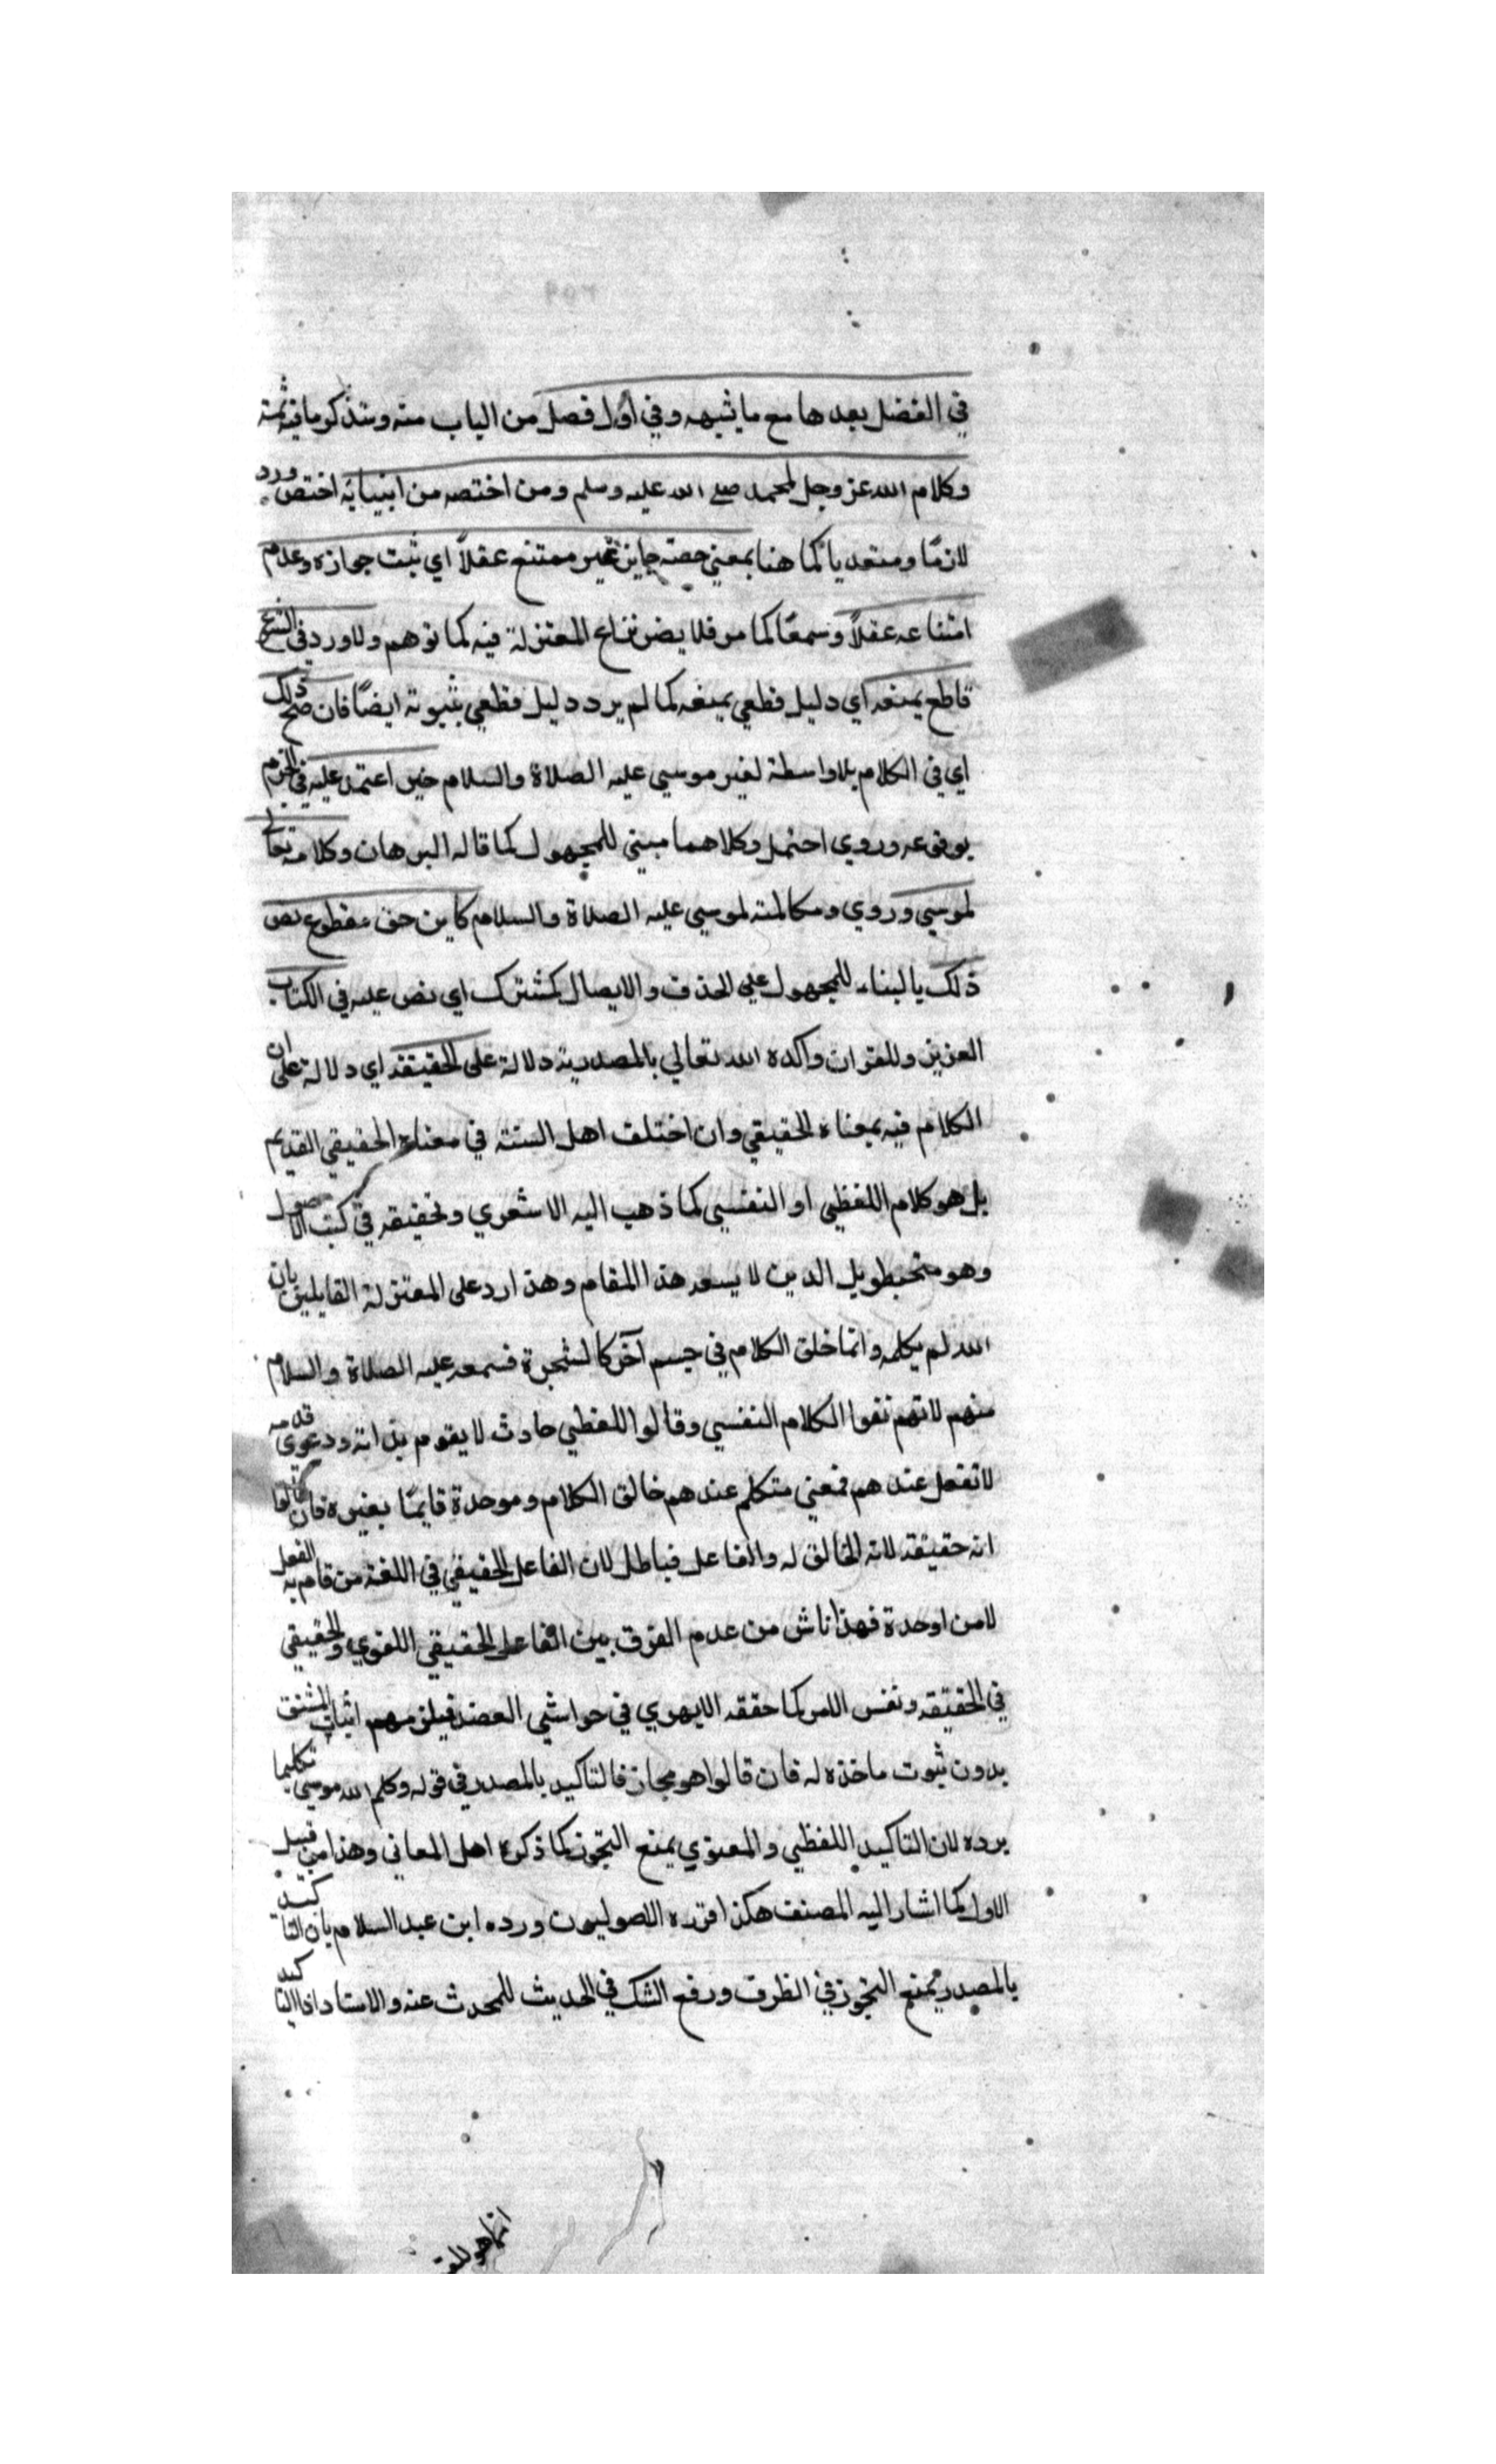 في الفضل بعدها مع ما يشبهه وفي اول فصل من الباب منه وسنذكر ما فيه ثمة
وكلام الله عز وجل لمحمد صلى الله عليه وسلم ومن اختصه من انبيائه اختص ورد
لازمًا ومتعديا كما هنا بمعني خصه جايز غير ممتنع عقلاً اي ثبت جوازه وعدم
امتناعه عقلاً وسمعًا كما مر فلا يضر نزاع المعتزلة فيه كما توهم ولا ورد في الشرع
قاطع يمنعه اي دليل قطعي يمنعه كما لم يرد دليل قطعي بثبوته ايضًا فان صح ذلك
اي في الكلام بلا واسطة لغير موسي عليه الصلاة والسلام حين اعتمد عليه في الجزم
بوقوعه وروي احتمل وكلاهما مبني للمجهول كما قاله البرهان وكلامه تعالى
لموسي وروي ومكالمته لموسي عليه الصلاة والسلام كاين حق مقطوع نص
ذلك بالبناء للمجهول علي الحذف والايصال كمشترك اي نص عليه في الكتاب
العزيز وللقران واكده الله تعالي بالمصدرية دلالة على الحقيقة اي دلالة على ان
الكلام فيه بمعناه الحقيقي وان اختلف اهل السنة في معناه الحقيقي القديم
بل هو كلام اللفظي او النفسي كما ذهب اليه الاشعري وتحقيقه في كتب الاصول
وهو متحبطويل الدين لا يسعه هذا المقام وهذا رد على المعتزلة القايلين بان
الله لم يكلمه وانما خلق الكلام في جسم آخر كالشجرة فسمعه عليه الصلاة والسلام
منهم لانهم نفوا الكلام النفسي وقالوا اللفظي حادث لا يقوم بذاته ودعوى قدمه
لا تفعل عندهم فمعني متكلم عندهم خالق الكلام وموحدة قايمًا بغيره فان قالوا
انه حقيقة لانه الخالق له والفاعل فباطل لان الفاعل الحقيقي في اللغة من قام به الفعل
لا من اوحدة فهذا ناش من عدم الفرق بين الفاعل الحقيقي اللغوي والحقيقي
في الحقيقة ونفس الامر كما حققه الابهري في حواشي العضد فيلزمهم اثبات المشتق
بدون ثبوت ماخذه له فان قالوا هو مجاز فالتاكيد بالمصدر في قوله وكلم الله موسي تكليما
يرده لان التاكيد اللفظي والمعنوي يمنع التجوز كما ذكره اهل المعاني وهذا من قبيل
الاول كما اشار اليه المصنف هكذا قرره الاصوليون ورده ابن عبد السلام بان التاكيد
بالمصدر يمنع التجوز في الظرف ورفع الشك في الحديث للمحدث عنه والاسناد افاالتاكيد
انما هو